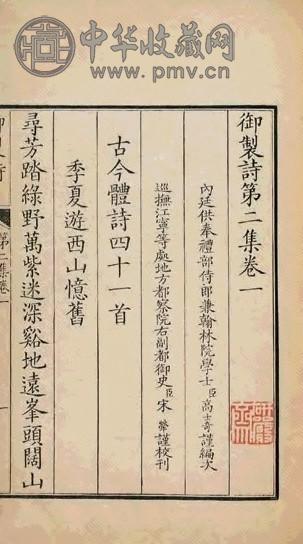 中华收藏网
www.pmv.cn
御製詩第二集卷一
內廷供奉禮部侍郎兼翰林院學士臣高士奇謹編次
巡撫江寧等處地方都察院右副都御史臣宋犖謹校刊
古今體詩四十一首
季夏遊西山憶舊
尋芳踏綠野萬紫迷深谿地遠峯頭闊山
第二集卷一